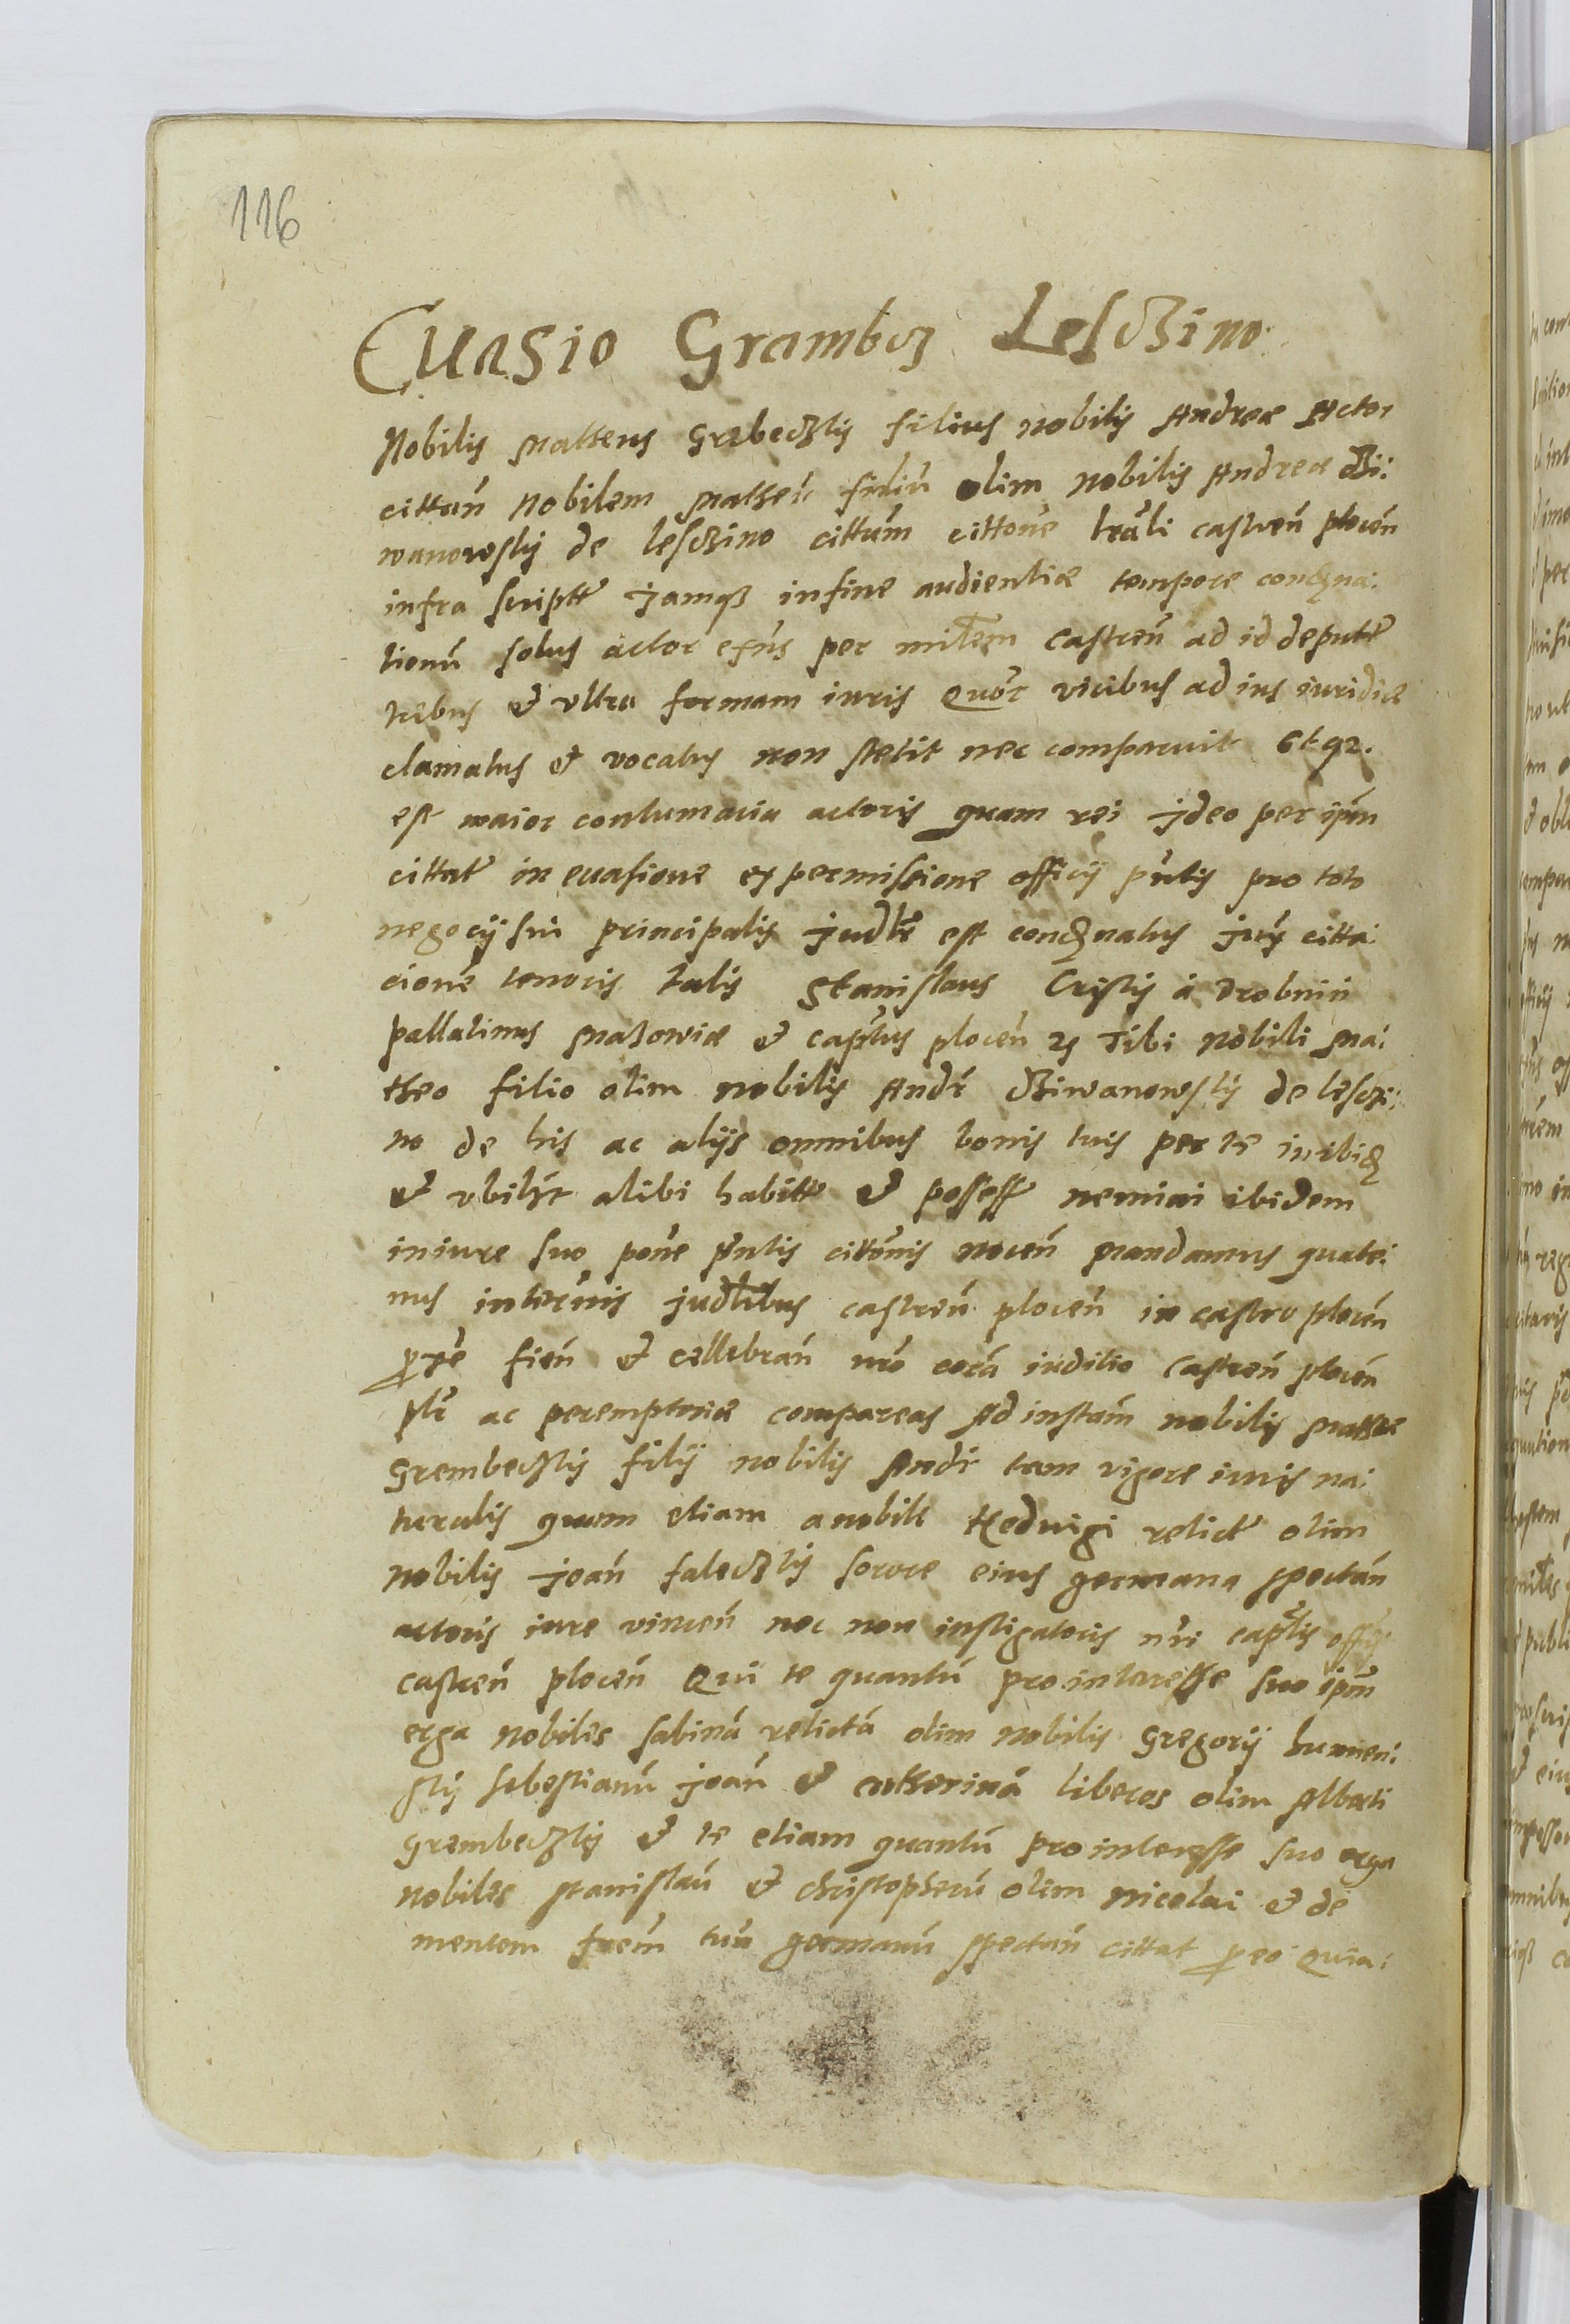 116
Evasio Grambcz Lesczino
Nobilis Matheus Grebeczkij filius nobilis Andreæ Actor
cittan̄ Nobilem Matheū filiū olim Nobilis Andreæ dzi:
wanowskij de lesczino cittum̄ cittone trāli castren̄ plocen̄
infra scriptt̄ jamqz in fine audientiæ tempore condzna:
tionū solus actor eius per milem̄ castren̄ ad id deputt̄
trebus et vltra formam iuris quor̄ vicibus ad ius iuridicæ
clamatus et vocatus non stetit nec comparuit Et qz.
est maior contumacia actoris quam rei jdeo per ipm̄
cittatr̄ in euasione ex permissione officij pn̄tis pro toto
negocij sui principalis judlr̄ est condznatus juxͅ citta:
cionē tenoris talis Stanislaus Criskij á Drobnin
pallatinus Mazowiæ et captus plocen̄ Tibi Nobili Ma:
theo filio olim Nobilis Andr̄ dziwanowskij de lesczi:
no de his ac alijs omnibus bonis tuis per te inibidz
et vbilzt alibi habitt̄ et possess̄ nemini ibidem
in iure suo pone pn̄tis cittōnis nocen̄ Mandamus quate:
nus in terͫnis judlibus castren̄ plocen̄ in castro plocen̄
prͦxe fien̄ et cellebran̄ nrō corā iuditio Castren̄ plocen̄
plr̄ ac peremptoriæ compareas Ad instam̄ nobilis Mathæi
Grembeczkij filij nobilis Andr̄ tam vigore iuris na:
turalis quam etiam a nobili Hedvigi relictr̄ olim
Nobilis Joan̄ faleczkij sorore eius germana spectan̄
actoris iure vincen̄ nec non instigatoris nr̄i captlis offij
castren̄ plocen̄ Qui te quantū pro interesse suo ipm̄
erga Nobiles Sabinā relictā olim Nobilis Gregorij humien:
skij Sebestianū Joan̄ et catherinā liberos olim Alberti
Grembeczkij et te etiam quantū pro interesse suo erga
Nobiles Stanislaū et christopherū olim Nicolai et de
mentem frem̄ tuū germanū spectan̄ cittat pro eo Quia: